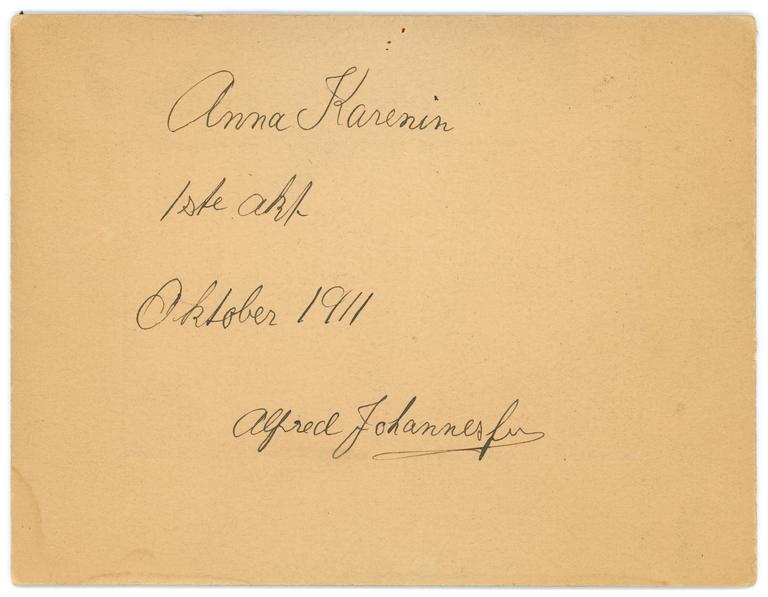 Anna Karenin
1ste akt
Oktober 1911
Alfred Johannessen